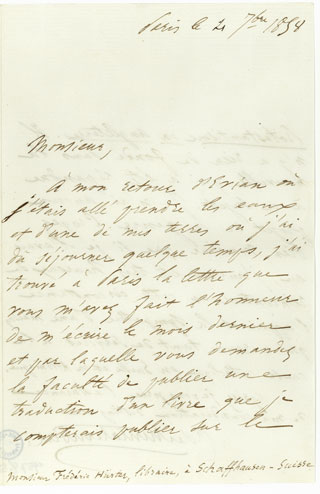 Paris le 21 7bre 1858
Monsieur,
A mon retour d'Evian où
j'étais allé prendre les eaux
et d'une de mes terres où j'ai
dû séjourner quelque temps, j'ai
trouvé à Paris la lettre que
vous m'avez fait l'honneur
de m'écrire le mois dernier
et par laquelle vous demandez
la faculté de publier une
traduction d'un livre que je
comptais publier sur le
Monsieur Frédéric Hurter, libraire, à Schaffhausen - Suisse